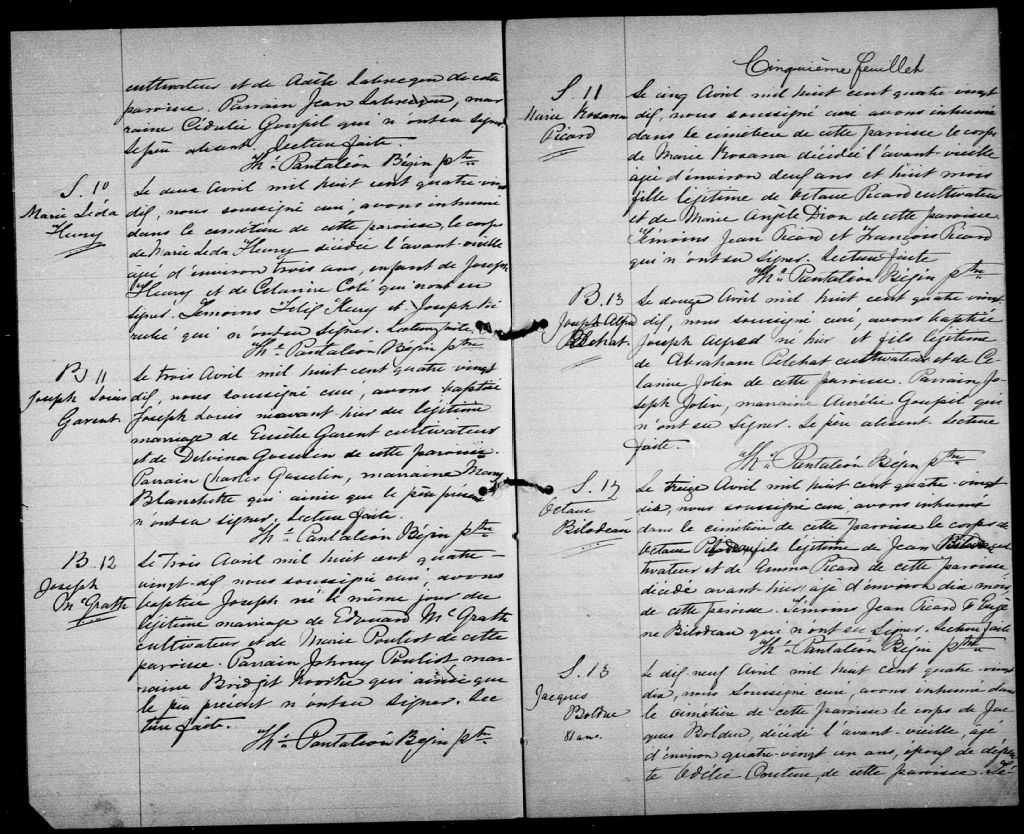 cultivateur et de Adèle Labrecque de cette
paroisse. Parrain Jean Labrecque, mar-
raine Cédulie Goupil qui n'ont su signer.
Le père absent. Lecture faite.
Ths. Pantaléon Bégin ptre
S. 10
Marie Léda
Fleury
Le deux Avril mil huit cent quatre vingt
dix, nous soussigné curé, avons inhumé
dans le cimetière de cette paroisse, le corps
de Marie Leda Fleury décédée l'avant-veille
agée d'environ trois ans, enfant de Joseph
Fleury et de Célanire Coté qui n'ont su
signer. Temoins Félix Fleury et Joseph
qui n'ont su signer. Lecture faite.
Ths. Pantaléon Bégin ptre
B 11
Joseph Louis
Garent
Le trois Avril mil huit cent quatre vingt
dix, nous soussigné curé, avons baptisé
Joseph Louis né avant hier du légitime
mariage de Eusèbe Garent cultivateur
et de Delvina Gosselin de cette paroisse.
Parrain Charles Gosselin, marraine Mary
Blanchette qui ainsi que le père présent
n'ont su signer. Lecture faite.
Ths. Pantaléon Bégin ptre
B. 12
Joseph
McGrath
Le trois Avril mil huit cent quatre-
vingt-dix nous soussigné curé, avons
baptisé Joseph né le même jour du
légitime mariage de Edouard McGrath
cultivateur et de Marie Pouliot de cette
paroisse. Parrain Johnny Pouliot mar-
raine Bridget qui ainsi que
le père présent n'ont su signer. Lec
ture faite.
Ths. Pantaléon Bégin ptre
Cinquième feuillet
S 11
Marie Rosanna
Picard
Le cinq Avril mil huit cent quatre vingt
dix, nous soussigné curé avons inhumé
dans le cimetière de cette paroisse le corps
de Marie Rosanna décédée l'avant-veille
agée d'environ deux ans et huit mois
fille légitime de Octave Picard cultivateur
et de Marie Angèle Dion de cette paroisse.
Témoins Jean Picard et François Picard
qui n'ont su signer. Lecture faite
Ths. Pantaléon Bégin ptre
B. 13
Joseph Alfred
Pelchat
Le douze Avril mil huit cent quatre vingt
dix, nous soussigné curé, avons baptisé
Joseph Alfred né hier et fils légitime
de Abraham Pelchat cultivateur et de Cé-
lanire Jolin de cette paroisse. Parrain Jo-
seph Jolin, marraine Aurélie Goupil qui
n'ont su signer. Le père absent. Lecture
faite.
Ths. Pantaléon Bégin ptre
S. 12
Octave
Bilodeau
Le treize Avril mil huit cent quatre-vingt
dix, nous soussigné curé, avons inhumé
dans le cimetière de cette paroisse le corps de
Octave Bilodeau fils légitime de Jean Bilodeau cul
tivateur et de Emma Picard de cette paroisse
décédé avant hier, agé d'environ dix mois,
de cette paroisse. Témoins Jean Picard & Eugè
ne Bilodeau qui n'ont su signer. Lecture faite
Ths. Pantaléon Bégin ptre
S. 13
Jacques
Bolduc
81 ans.
Le dix neuf Avril mil huit cent quatre vingt
dix, nous soussigné curé, avons inhumé dans
le cimetière de cette paroisse le corps de Jac
ques Bolduc, décédé l'avant-veille, agé
d'environ quatre-vingt un ans, époux de défun
te Odélie Couture, de cette paroisse. Té-